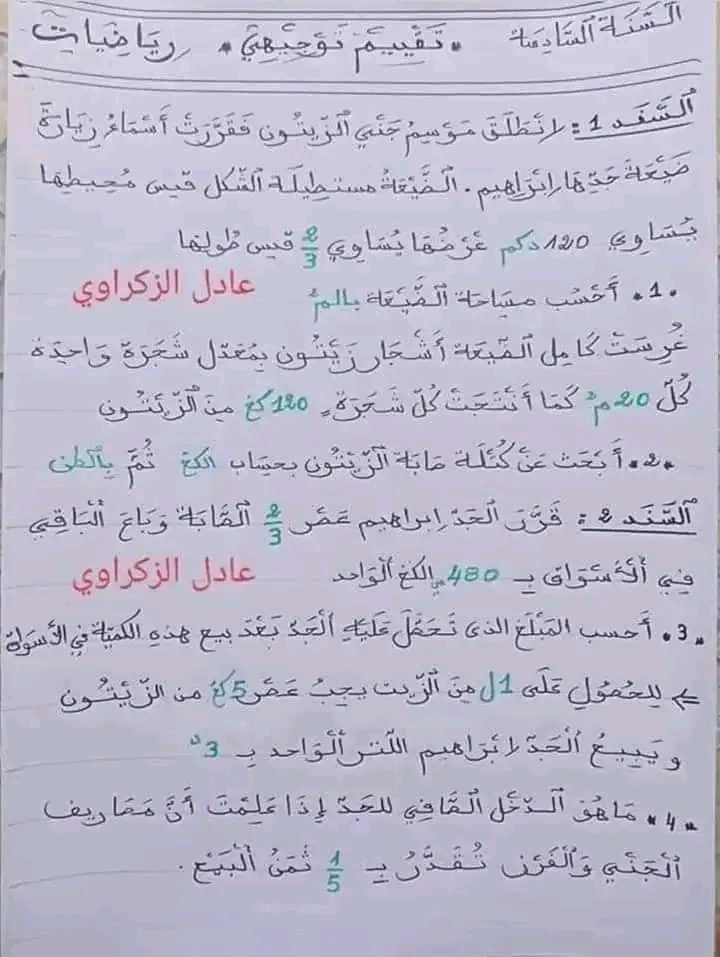 السَّنَةُ السَّادِسَةُ * تَقْيِيم تَوْجِيهِيّ * رِيَاضِيَات
السَّنَد 1 : لاِنْطَلَقَ مَوْسِمُ جَنْيِ الزَّيتُونِ فَقَرَّرَتْ أَسْمَاءُ زِيَارَةَ
ضَيْعَةِ جَدِّهَا إِبْرَاهِيم . الضَّيْعَةُ مستطِيلَة الشَّكل قيس مُحِيطِهَا
يُسَاوِي 120 دكم عَرْضُهَا يُسَاوِي 2/3 قيس طُولِهَا
1 • أَحْسُب مِسَاحَة الضَّيْعَة بالم²
عادل الزكراوي
غُرِسَتْ كَامِل الضَّيْعَة أَشْجَار زَيْتُون بِمُعَدّل شَجَرَة وَاحِدَة
كُلّ 20 م² كَمَا أَنْتَجَتْ كُلّ شَجَرَة 120 كغ مِنَ الزَّيْتُون
2 • أَبْحَث عَنْ كُتْلَة صَابَة الزَّيْتُون بحِسَاب الكغ ثُمَّ بِالطن
السَّنَد 2 : قَرَّرَ الجَدّ إبراهيم عَصْرَ 2/3 الصَّابَة وَبَاعَ البَاقِي
فِي الْأَسْوَاق بـ 480 مي الكغ الْوَاحد
عادل الزكراوي
3 • أحسب المَبْلَغ الذي تَحَصَّلَ عَلَيْهِ الْجَدّ بَعْدَ بيع هذه الكميّة في الأسواق
⇐ لِلْحُصُولِ عَلَى 1ل مِنَ الزّيت يجبُ عَصْر 5 كغ من الزَّيْتُون
وَيَبِيعُ الْجَدّ إبْرَاهيم اللتر الْوَاحد بـ 3د
4 • مَا هُوَ الدَّخْل الصَّافِي للجَدّ إذَا عَلِمْتَ أَنَّ مَصَاريف
الْجَنْي وَالْفَرْز تُقَدَّرُ بـ 1/5 ثَمَنُ الْبَيْع .